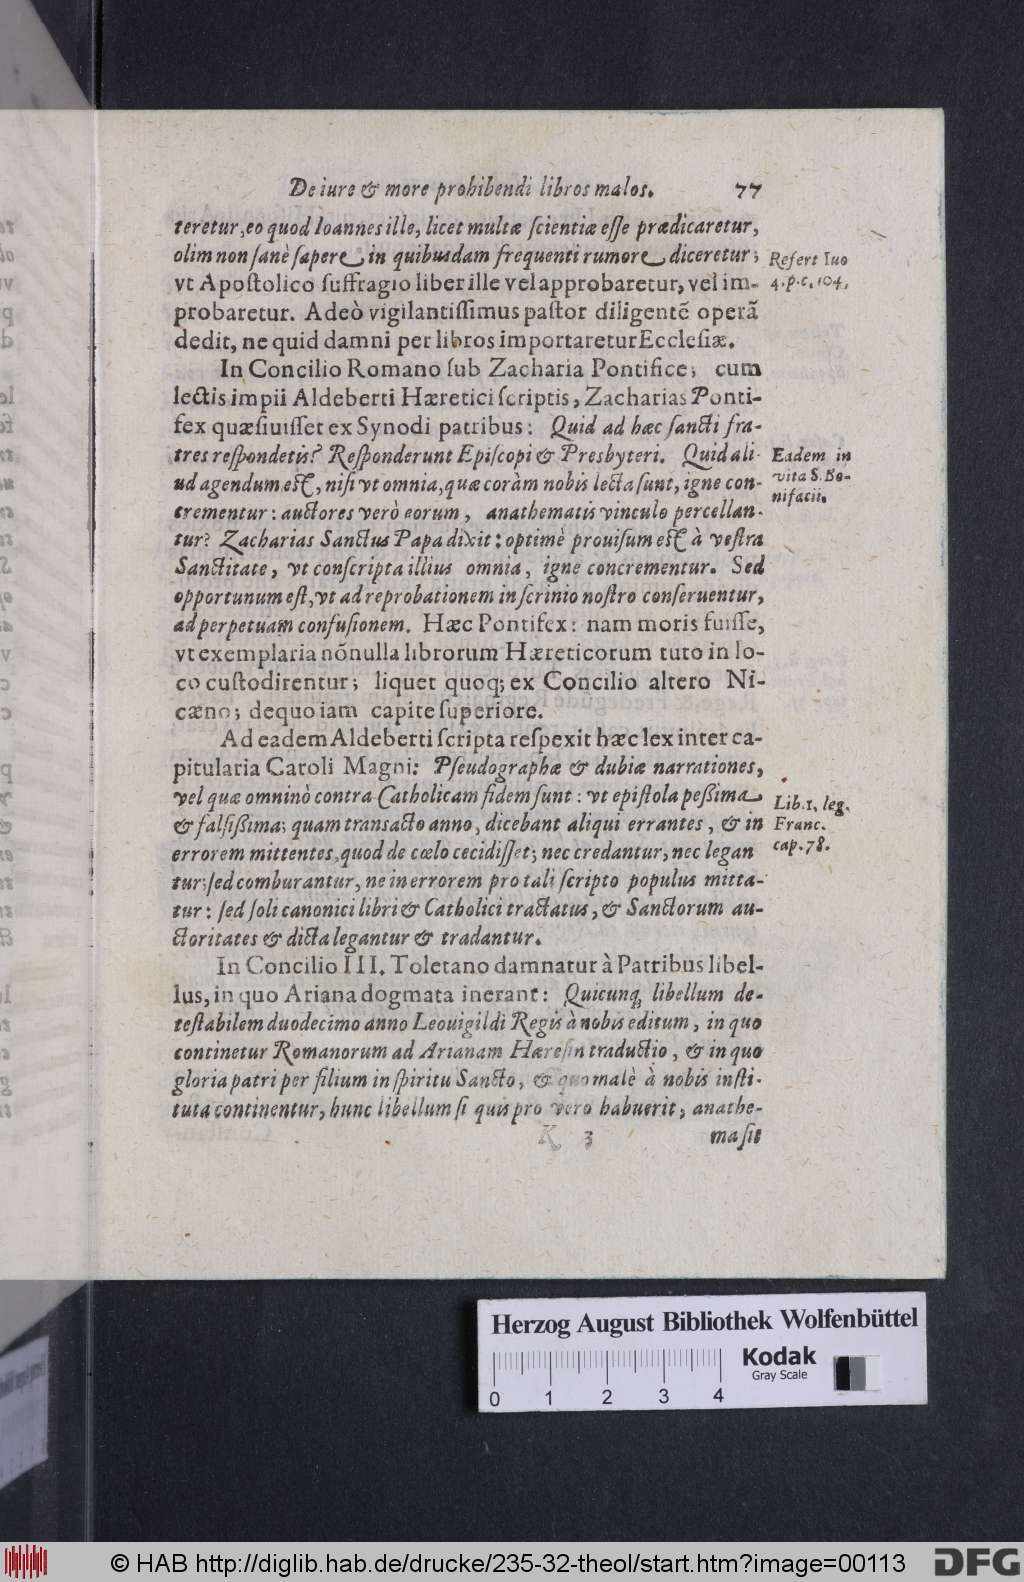 De iure & more prohibendi libros malos. 77
teretur, eo quod Ioannes ille, licet multæ ſcientiæ eſſe prædicaretur,
olim non ſanè ſapere, in quibuſdam frequenti rumore, diceretur;
Refert Iuo
vt Apoſtolico ſuffragio liber ille vel approbaretur, vel im-
4.p.c.104.
probaretur. Adeò vigilantiſſimus paſtor diligentē operā
dedit, ne quid damni per libros importaretur Eccleſiæ.
In Concilio Romano ſub Zacharia Pontifice; cum
lectis impii Aldeberti Hæretici ſcriptis, Zacharias Ponti-
fex quæſiuiſſet ex Synodi patribus: Quid ad hæc ſancti fra-
tres reſpondetis? Reſponderunt Epiſcopi & Presbyteri. Quid ali-
Eadem in
ud agendum eſt, niſi vt omnia, quæ coràm nobis lecta ſunt, igne con-
vita S. Bo-
nifacii.
crementur: auctores verò eorum, anathematis vinculo percellan-
tur? Zacharias Sanctus Papa dixit: optimè prouiſum eſt à veſtra
Sanctitate, vt conſcripta illius omnia, igne concrementur. Sed
opportunum eſt, vt ad reprobationem in ſcrinio noſtro conſeruentur,
ad perpetuam confuſionem. Hæc Pontifex: nam moris fuiſſe,
vt exemplaria nõnulla librorum Hæreticorum tuto in lo-
co cuſtodirentur; liquet quoq; ex Concilio altero Ni-
cæno; de quo iam capite ſuperiore.
Ad eadem Aldeberti ſcripta reſpexit hæc lex inter ca-
pitularia Caroli Magni: Pſeudographæ & dubiæ narrationes,
vel quæ omninò contra Catholicam fidem ſunt: vt epiſtola peßima
Lib.1. leg.
& falſißima; quam transacto anno, dicebant aliqui errantes, & in
Franc.
errorem mittentes, quod de cœlo cecidiſſet; nec credantur, nec legan
cap.78.
tur; ſed comburantur, ne in errorem pro tali ſcripto populus mitta-
tur: ſed ſoli canonici libri & Catholici tractatus, & Sanctorum au-
ctoritates & dicta legantur & tradantur.
In Concilio III. Toletano damnatur à Patribus libel-
lus, in quo Ariana dogmata inerant: Quicunq; libellum de-
teſtabilem duodecimo anno Leouigildi Regis à nobis editum, in quo
continetur Romanorum ad Arianam Hæreſin traductio, & in quo
gloria patri per filium in ſpiritu Sancto, & quo malè à nobis inſti-
tuta continentur, hunc libellum ſi quis pro vero habuerit, anathe-
K 3 ma ſit
Herzog August Bibliothek Wolfenbüttel
Kodak
Gray Scale
0 1 2 3 4
© HAB http://diglib.hab.de/drucke/235-32-theol/start.htm?image=00113
DFG